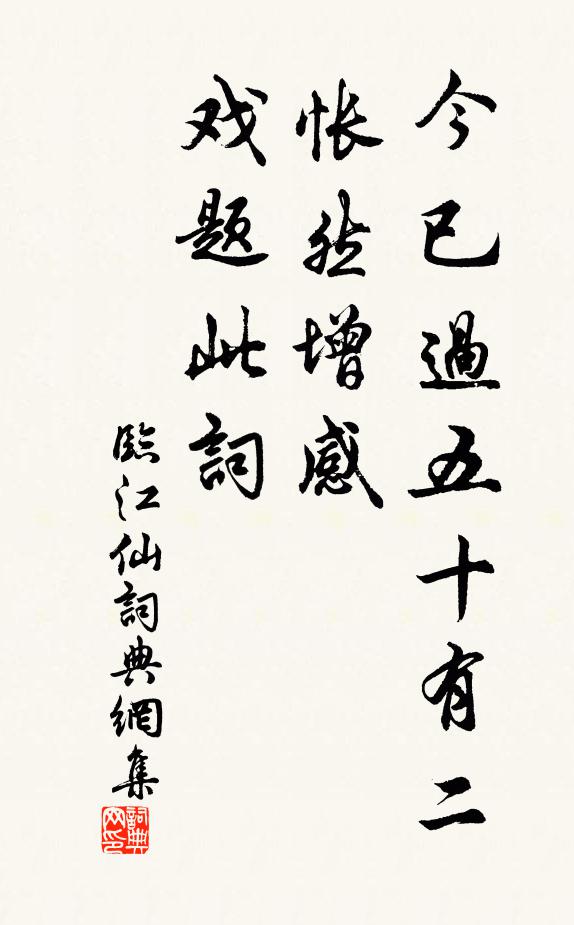 今已過五十有二
悵然增感
戏题此詞
臨江仙詞典網集
詞典
网印